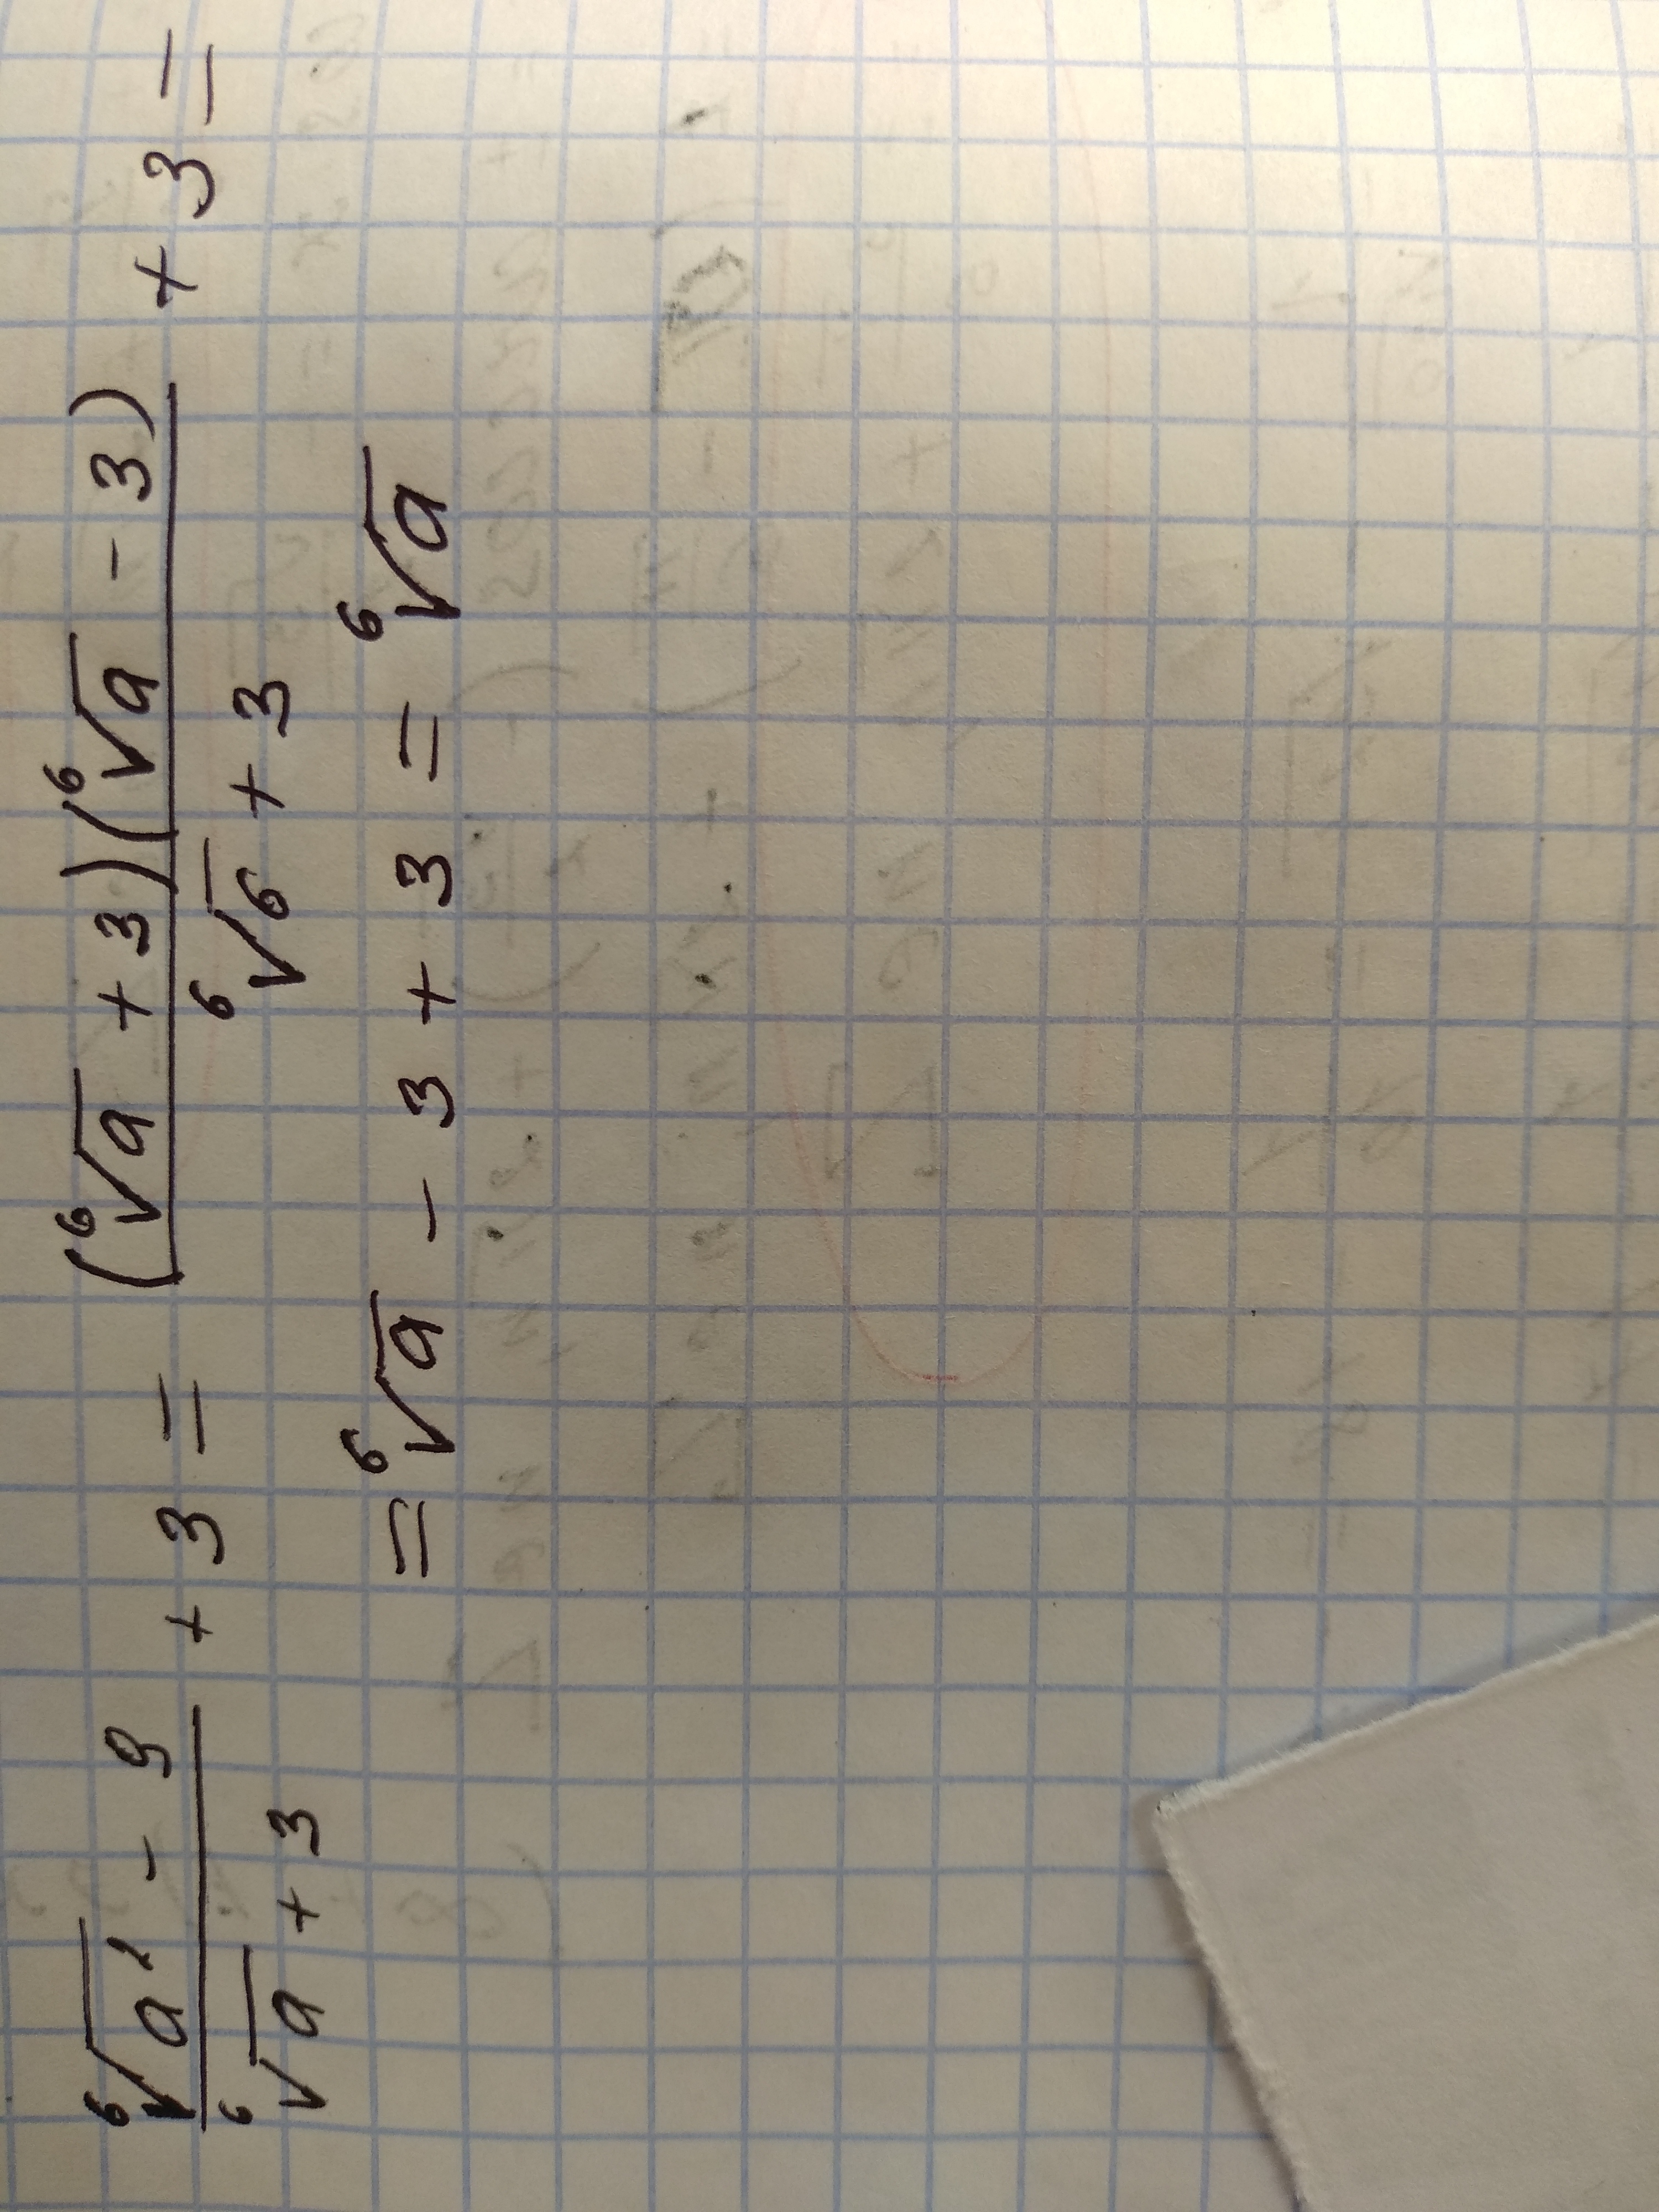 (⁶√a² - 9)/(⁶√a + 3) + 3 = ((⁶√a + 3)(⁶√a - 3))/(⁶√6 + 3) + 3 =
= ⁶√a - 3 + 3 = ⁶√a